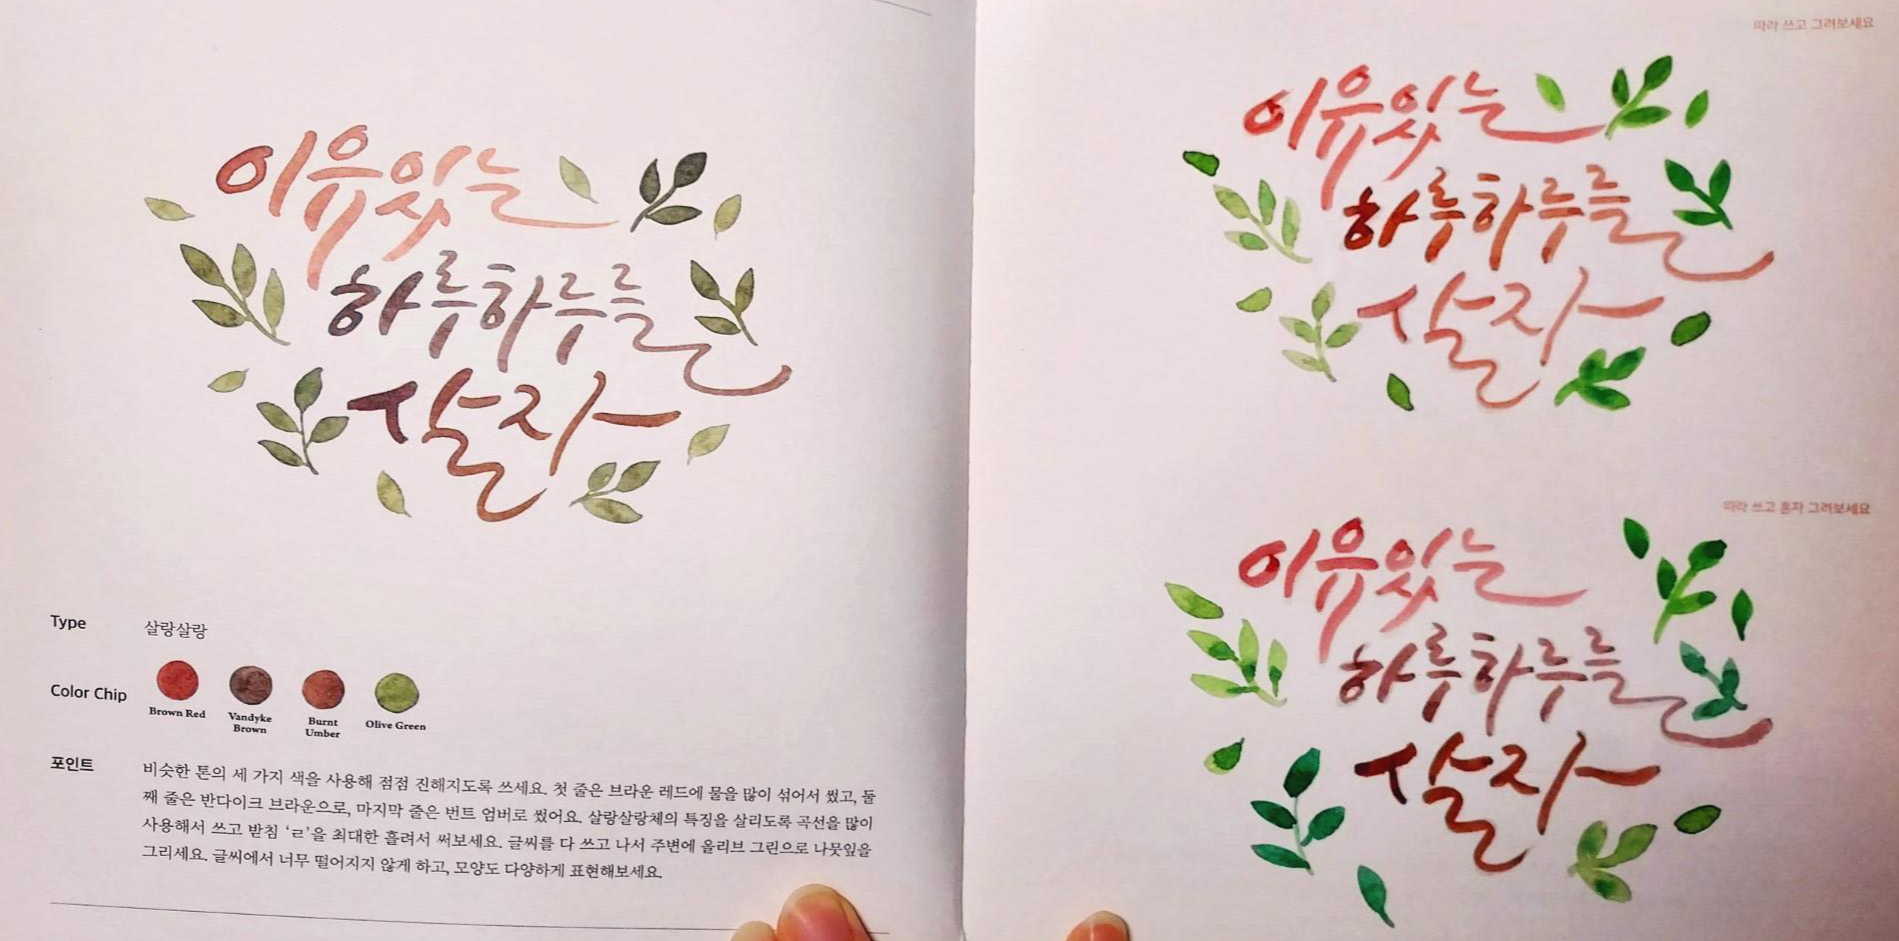 이유있는
하루하루를
살자
Type 살랑살랑
Color Chip
Brown Red
Vandyke Brown
Burnt Umber
Olive Green
포인트
비슷한 톤의 세 가지 색을 사용해 점점 진해지도록 쓰세요. 첫 줄은 브라운 레드에 물을 많이 섞어서 썼고, 둘
째 줄은 반다이크 브라운으로, 마지막 줄은 번트 엄버로 썼어요. 살랑살랑체의 특징을 살리도록 곡선을 많이
사용해서 쓰고 받침 ‘ㄹ’을 최대한 흘려서 써보세요. 글씨를 다 쓰고 나서 주변에 올리브 그린으로 나뭇잎을
그리세요. 글씨에서 너무 떨어지지 않게 하고, 모양도 다양하게 표현해보세요.
따라 쓰고 그려보세요
이유있는
하루하루를
살자
따라 쓰고 혼자 그려보세요
이유있는
하루하루를
살자